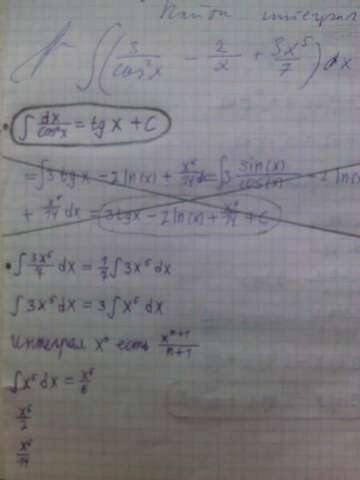 Найти интеграл
∫(3/cos²x − 2/x + 3x⁵/7)dx
• ∫ dx/cos²x = tg x + C
= ∫3 tg x − 2 ln(x) + x⁶/14 dx = ∫3 sin(x)/cos(x) − 2 ln(x)
+ x⁶/14 dx = 3tgx − 2 ln(x) + x⁶/14 + C
• ∫ 3x⁵/7 dx = 1/7 ∫ 3x⁵ dx
∫ 3x⁵ dx = 3 ∫ x⁵ dx
интеграл xⁿ есть xⁿ⁺¹/n+1
∫ x⁵ dx = x⁶/6
x⁶/2
x⁶/14